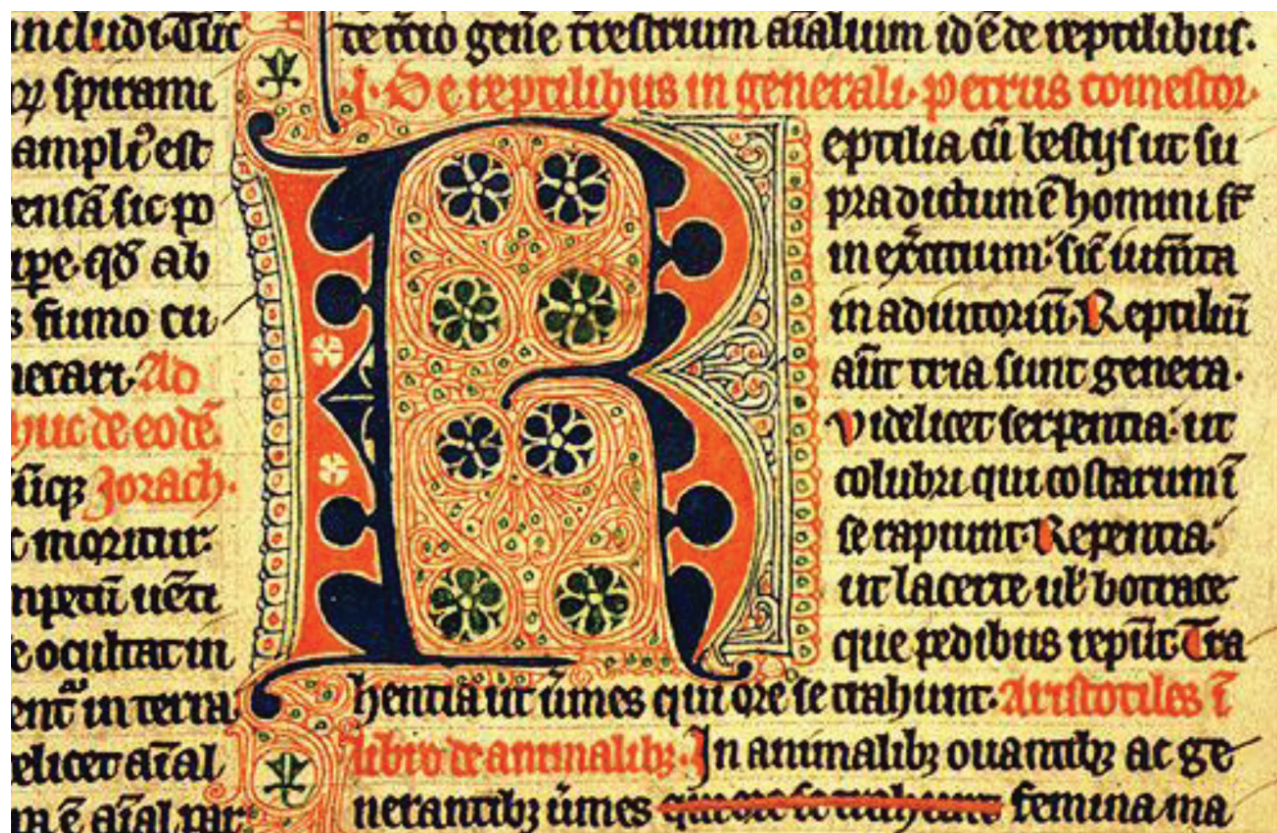 includi. Tūc
spirami
ampli' est
ensā sic po
ipe. qđ ab
s fumo cu
necari. Ad
huc de eodē.
ūq; Zorach.
t moritur:
mpetū uēti
e ocultat in
ent' in terra
elicet aīal
ē aīal par
te rcio gn̄e trestrium aīalium id ē de reptilibus.
I. De reptilibus in generali. Petrus comestor.
Reptilia cū bestijs ut su
pradictum ē homini st̄
in ex̄citium. sic̄ ium̄ta
in adiutoriū. Reptiliū
aūt tria sunt genera.
Videlicet serpentia: ut
colubri qui costarum ī
se rapiunt. Repentia
ut lacerte uł botrace
que pedibus repūt. Tra
hentia ut ūmes qui ore se trahunt. Aristotiles ī
libro de animalib; In animalib; ouantib; ac ge
nerantib; ūmes qui ore se trahunt femina ma